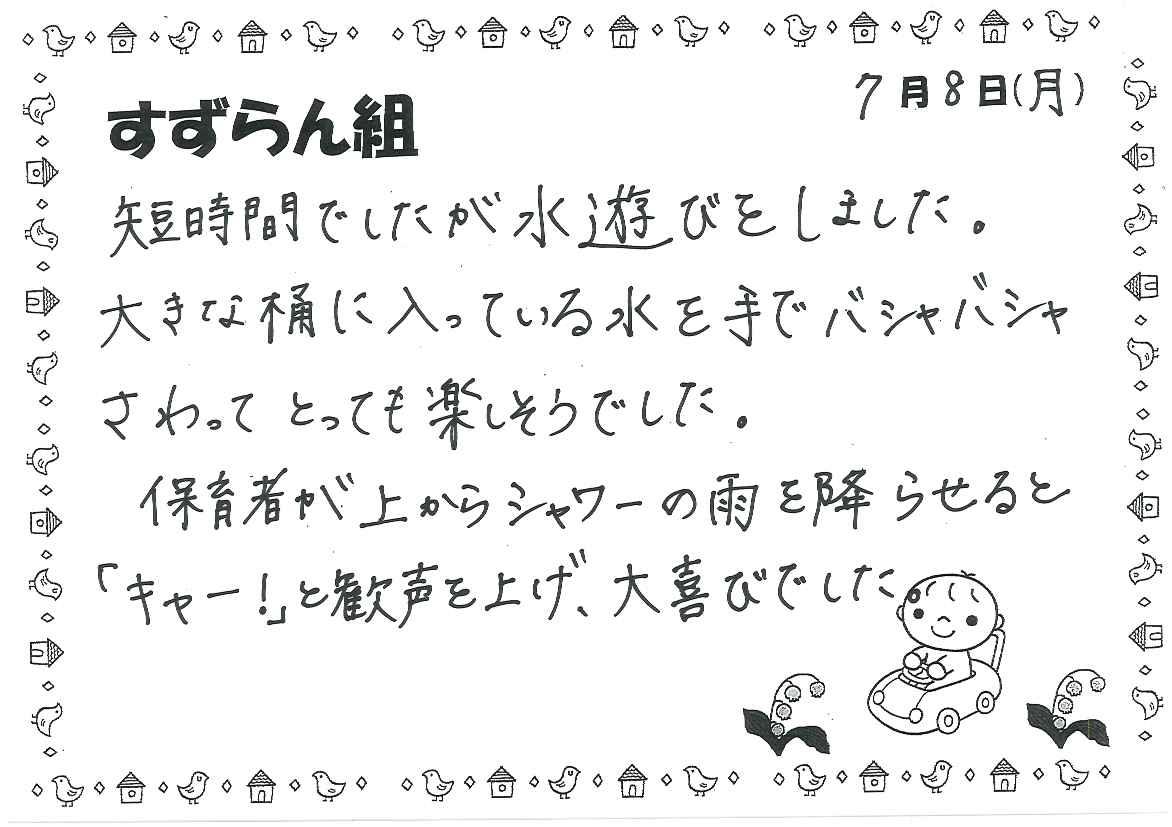 7月8日(月)
すずらん組
短時間でしたが水遊びをしました。
大きな桶に入っている水を手でバシャバシャ
さわって とっても楽しそうでした。
保育者が上からシャワーの雨を降らせると
「キャー!」と歓声を上げ、大喜びでした。